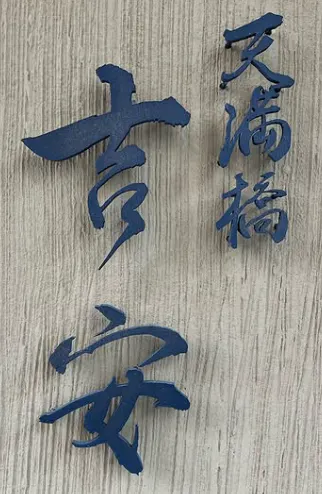 天満橋
吉安